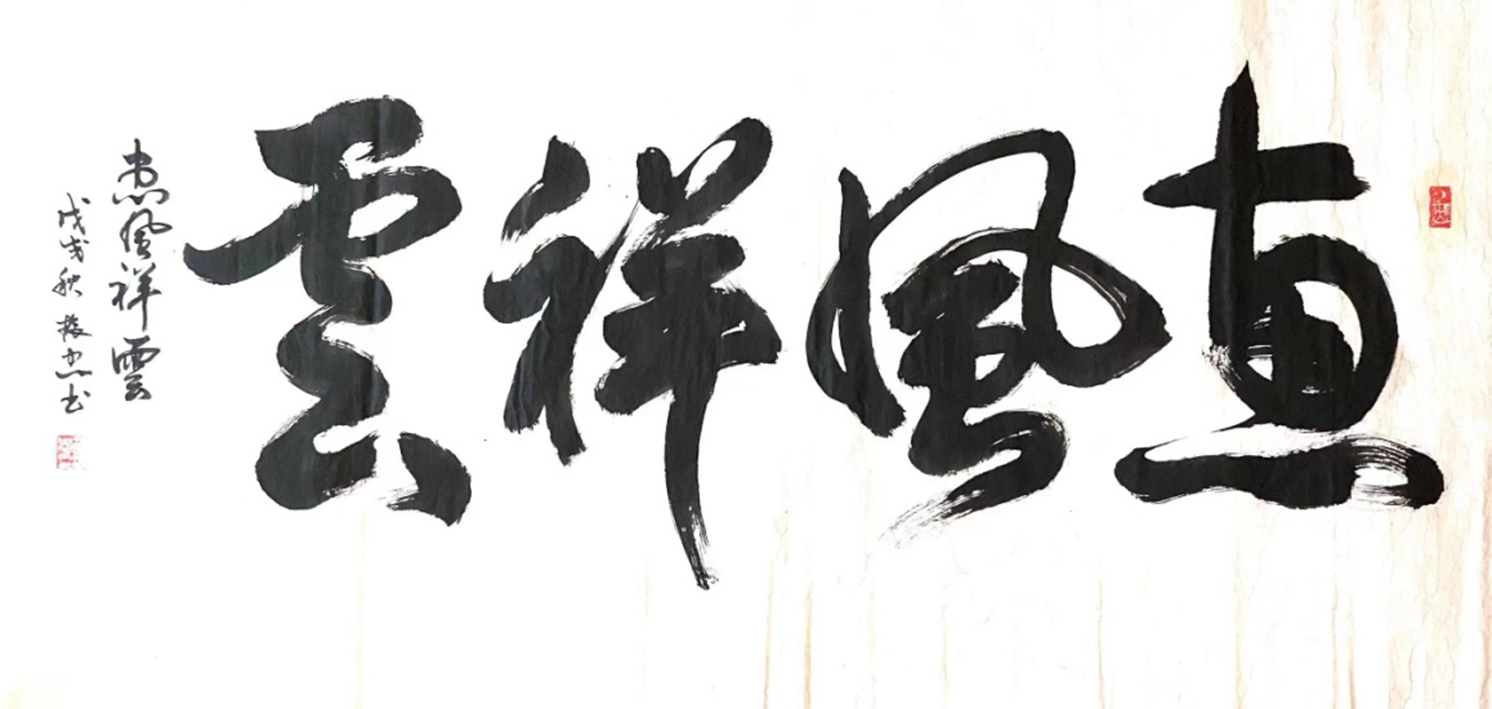 惠風祥雲
惠風祥雲
戊戌秋 书